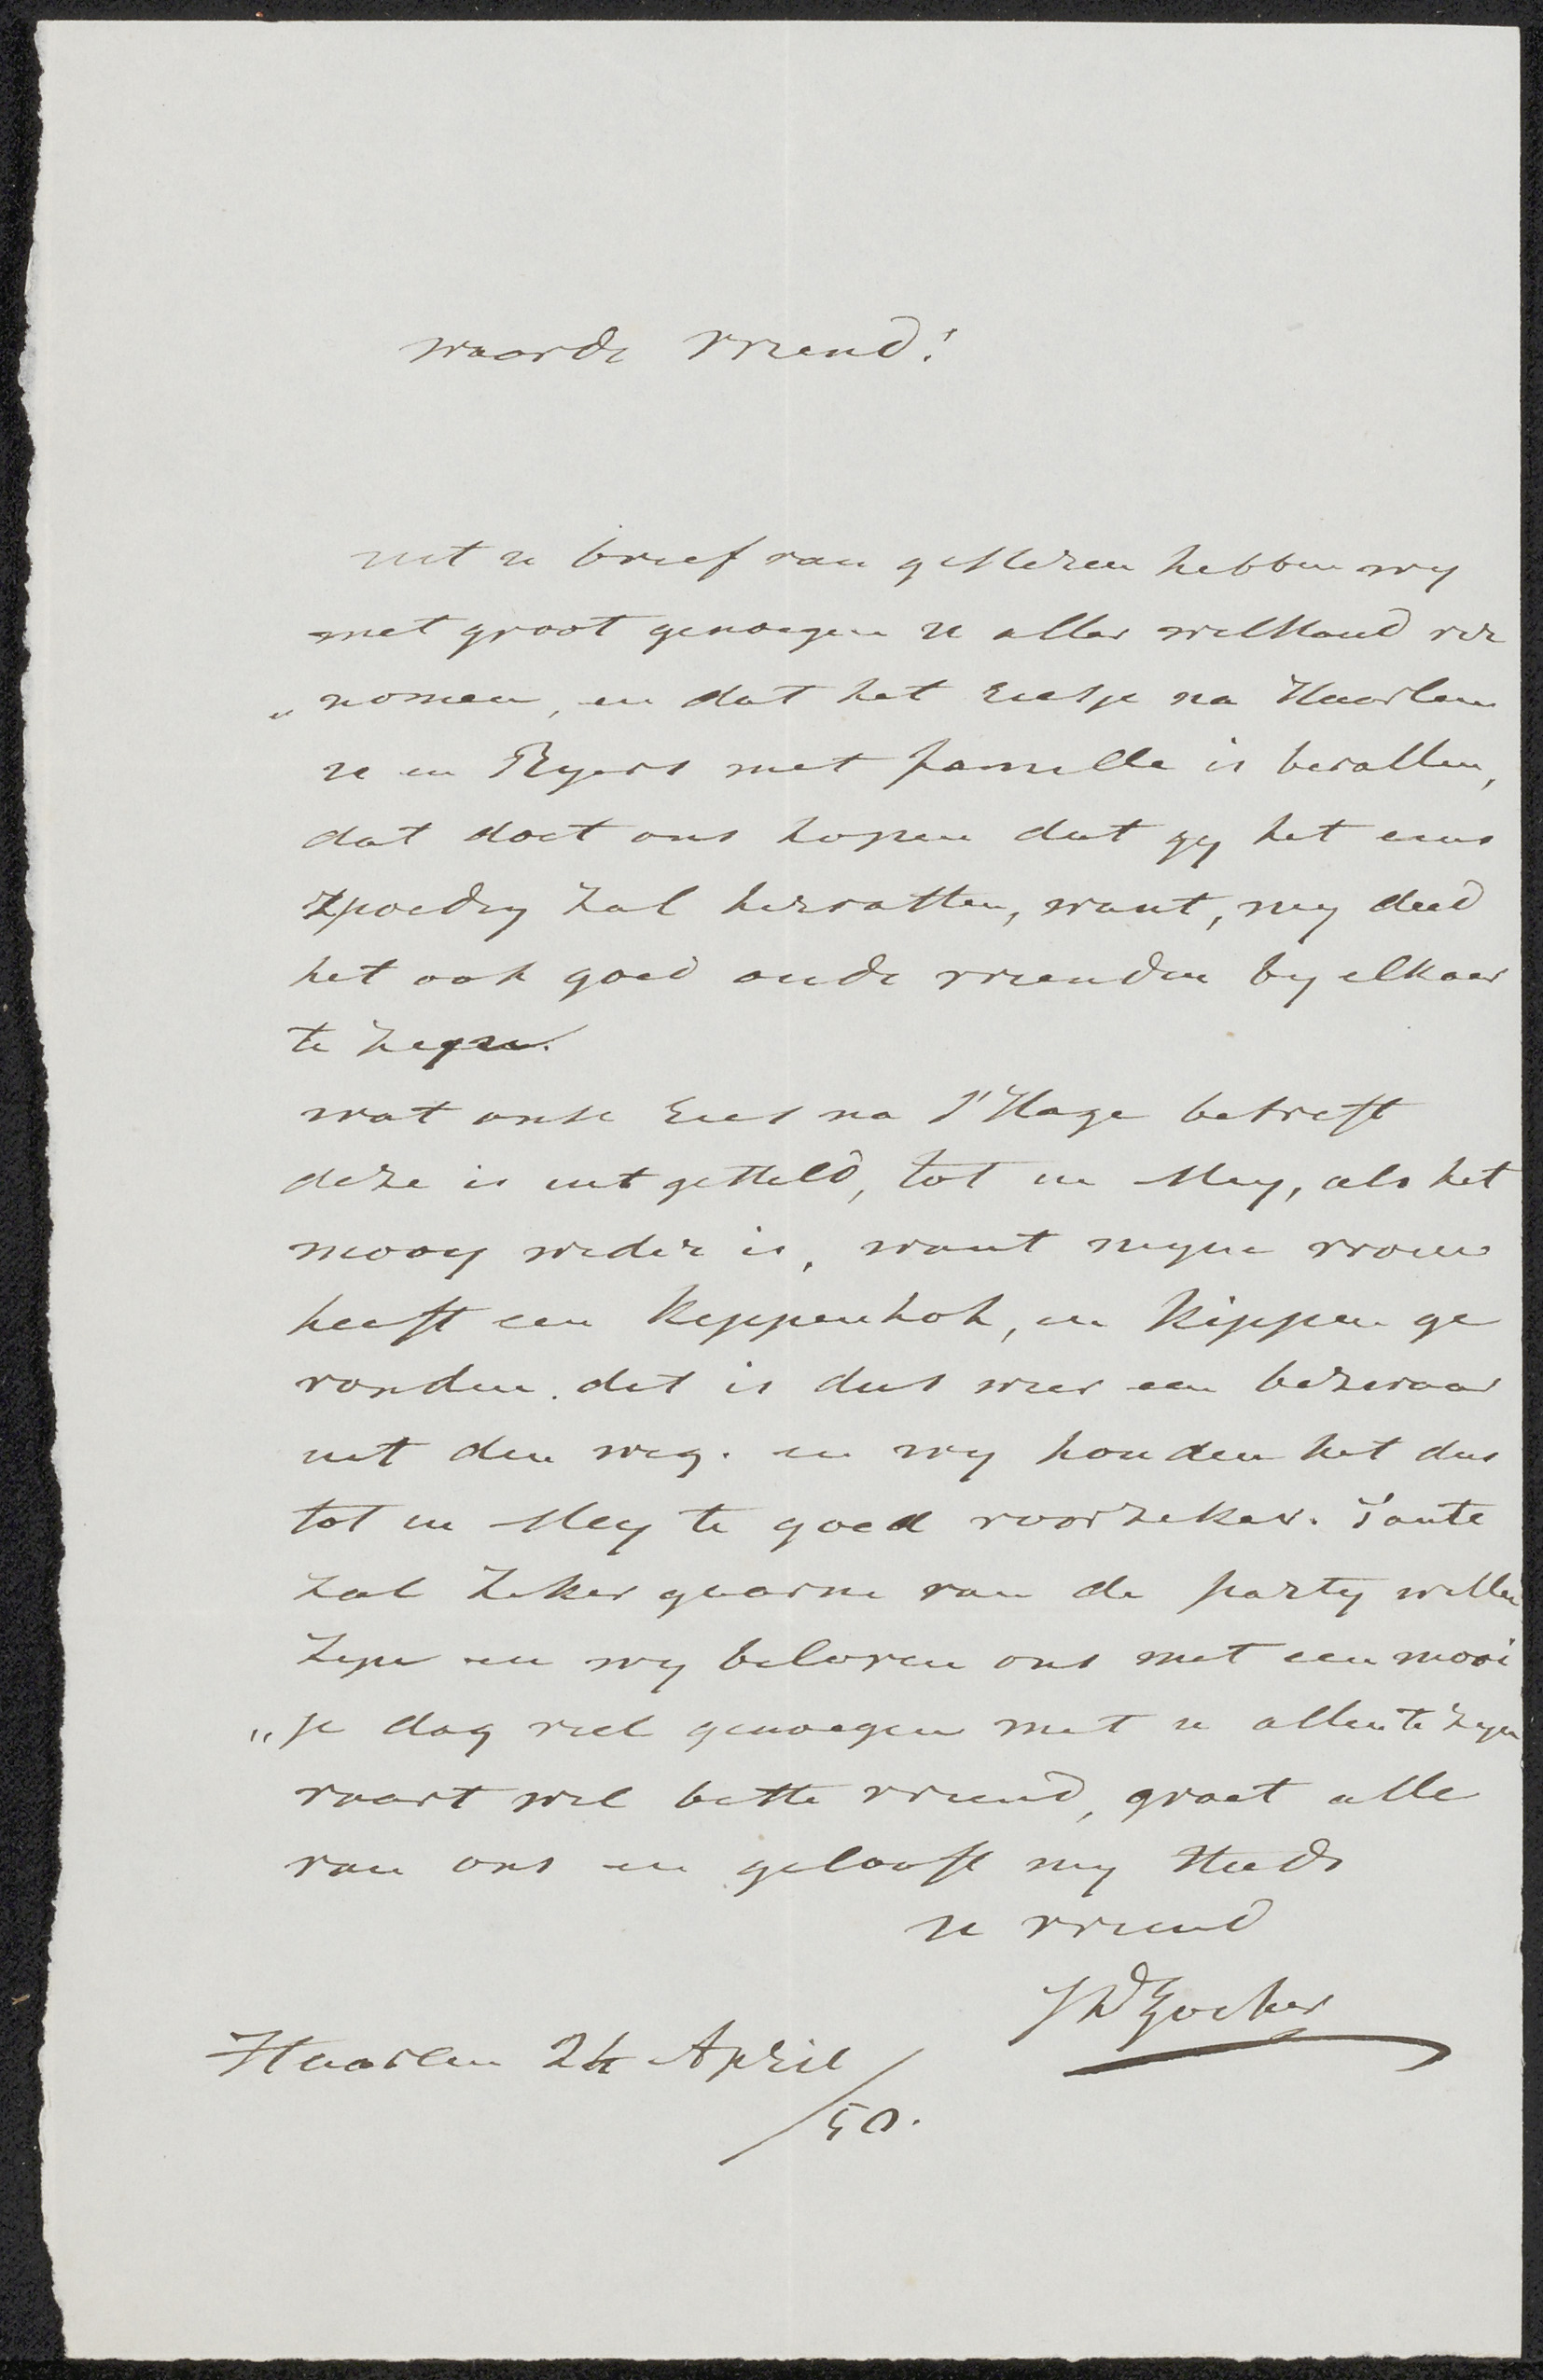 waarde vriend!
uit u brief van gisteren hebben wy
met groot genoegen u aller welstand ver
„nomen, en dat het reisje na Haarlem
u en Ryers met famille is bevallen,
dat doet ons hopen dat gy het eens
spoedig zal hervatten, want, my deed
het ook goed oude vrienden by elkaar
te zien.
wat onse reis na s'Hage betreft
deze is uit gesteld, tot in Mey, als het
mooy weder is, want myne vrouw
heeft een Kippenhok, en Kippen ge
vonden. dit is dus weer een bezwaar
uit den weg. en wy houden het dus
tot in Mey te goed voorzeker. Tante
zal zeker gaarne van de party willen
zyn en wy beloven ons met een mooi
„je dag veel genoegen met u allen te zyn
vaart wel beste vriend, groet alle
van ons en geloofd my steeds
u vriend
JDZocher
Haarlem 24 April
/50.